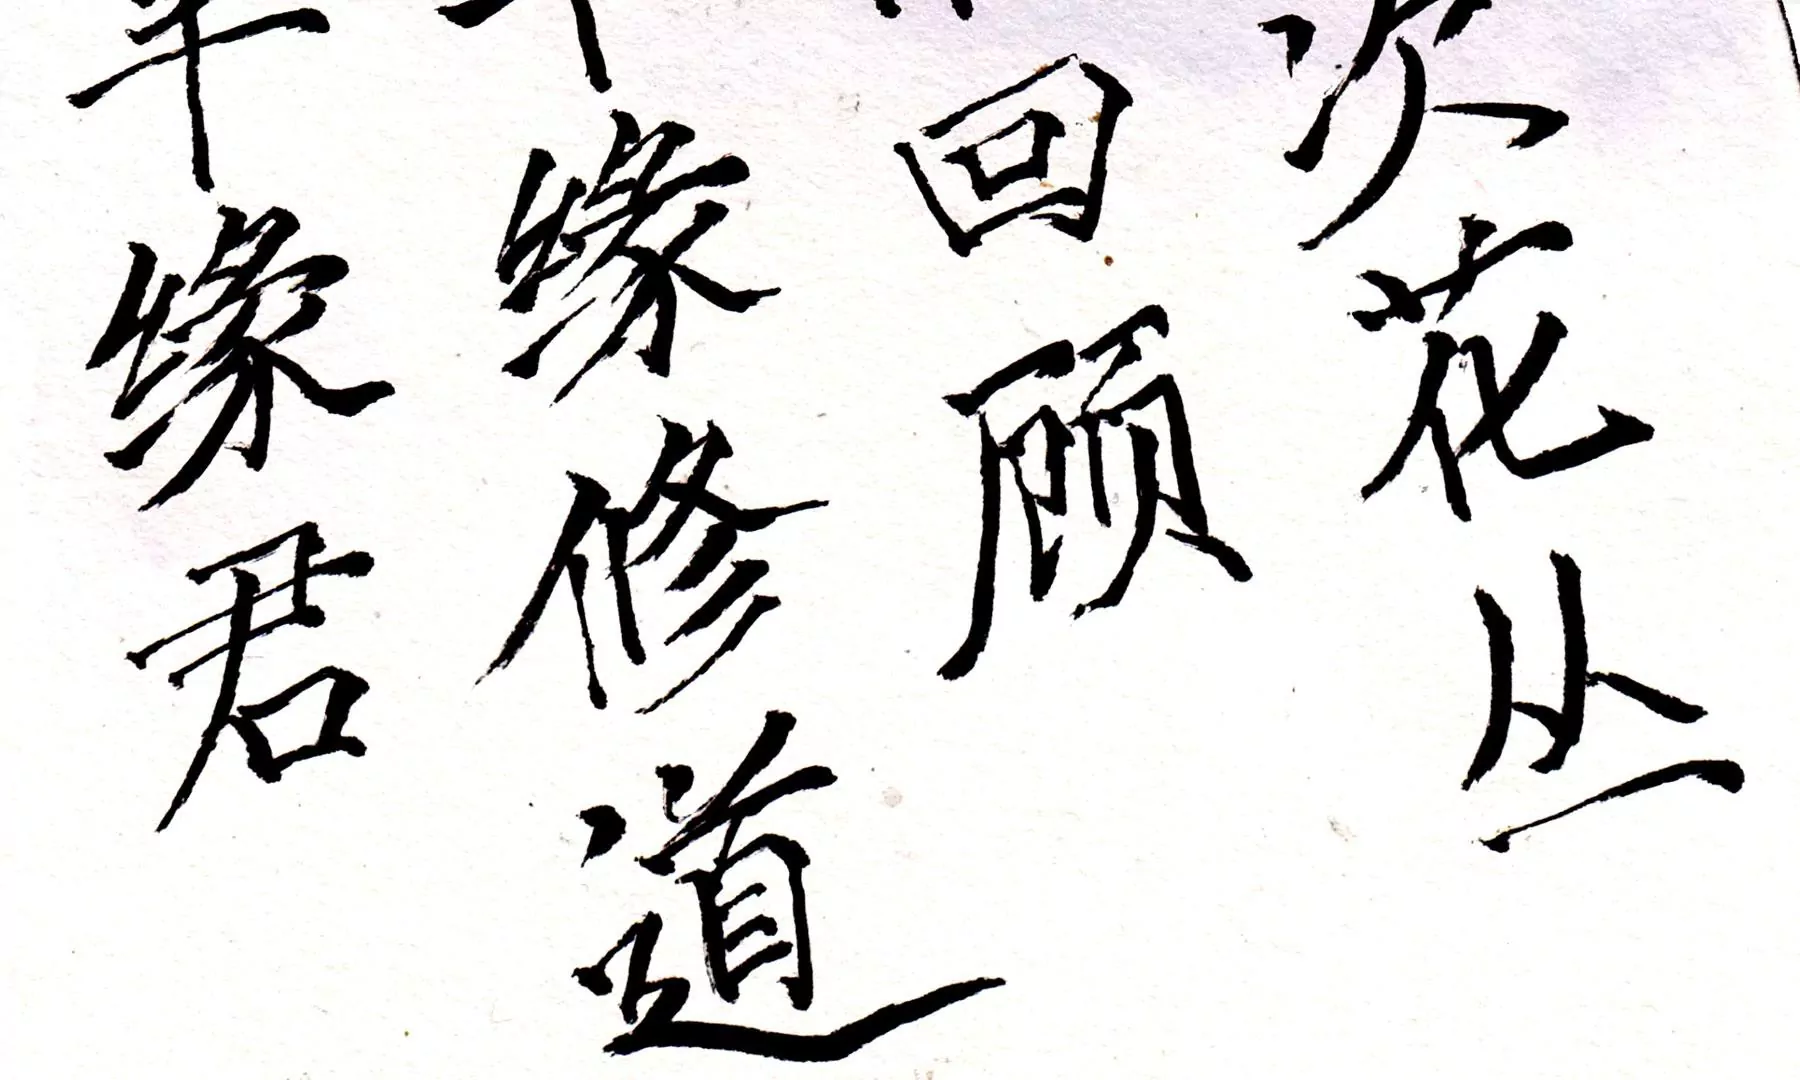 次花丛
回顾
缘修道
缘君